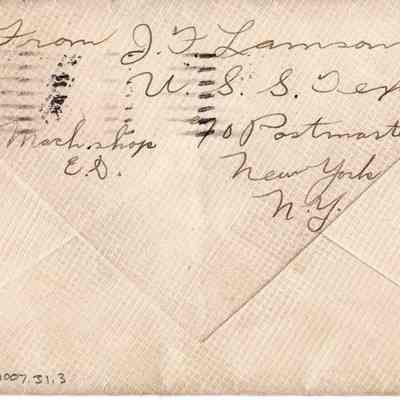 From J. F. Lamson
U. S. S. Tex
Mach. shop
E.D.
℅ Postmast
New York
N.Y.
1007.31.3